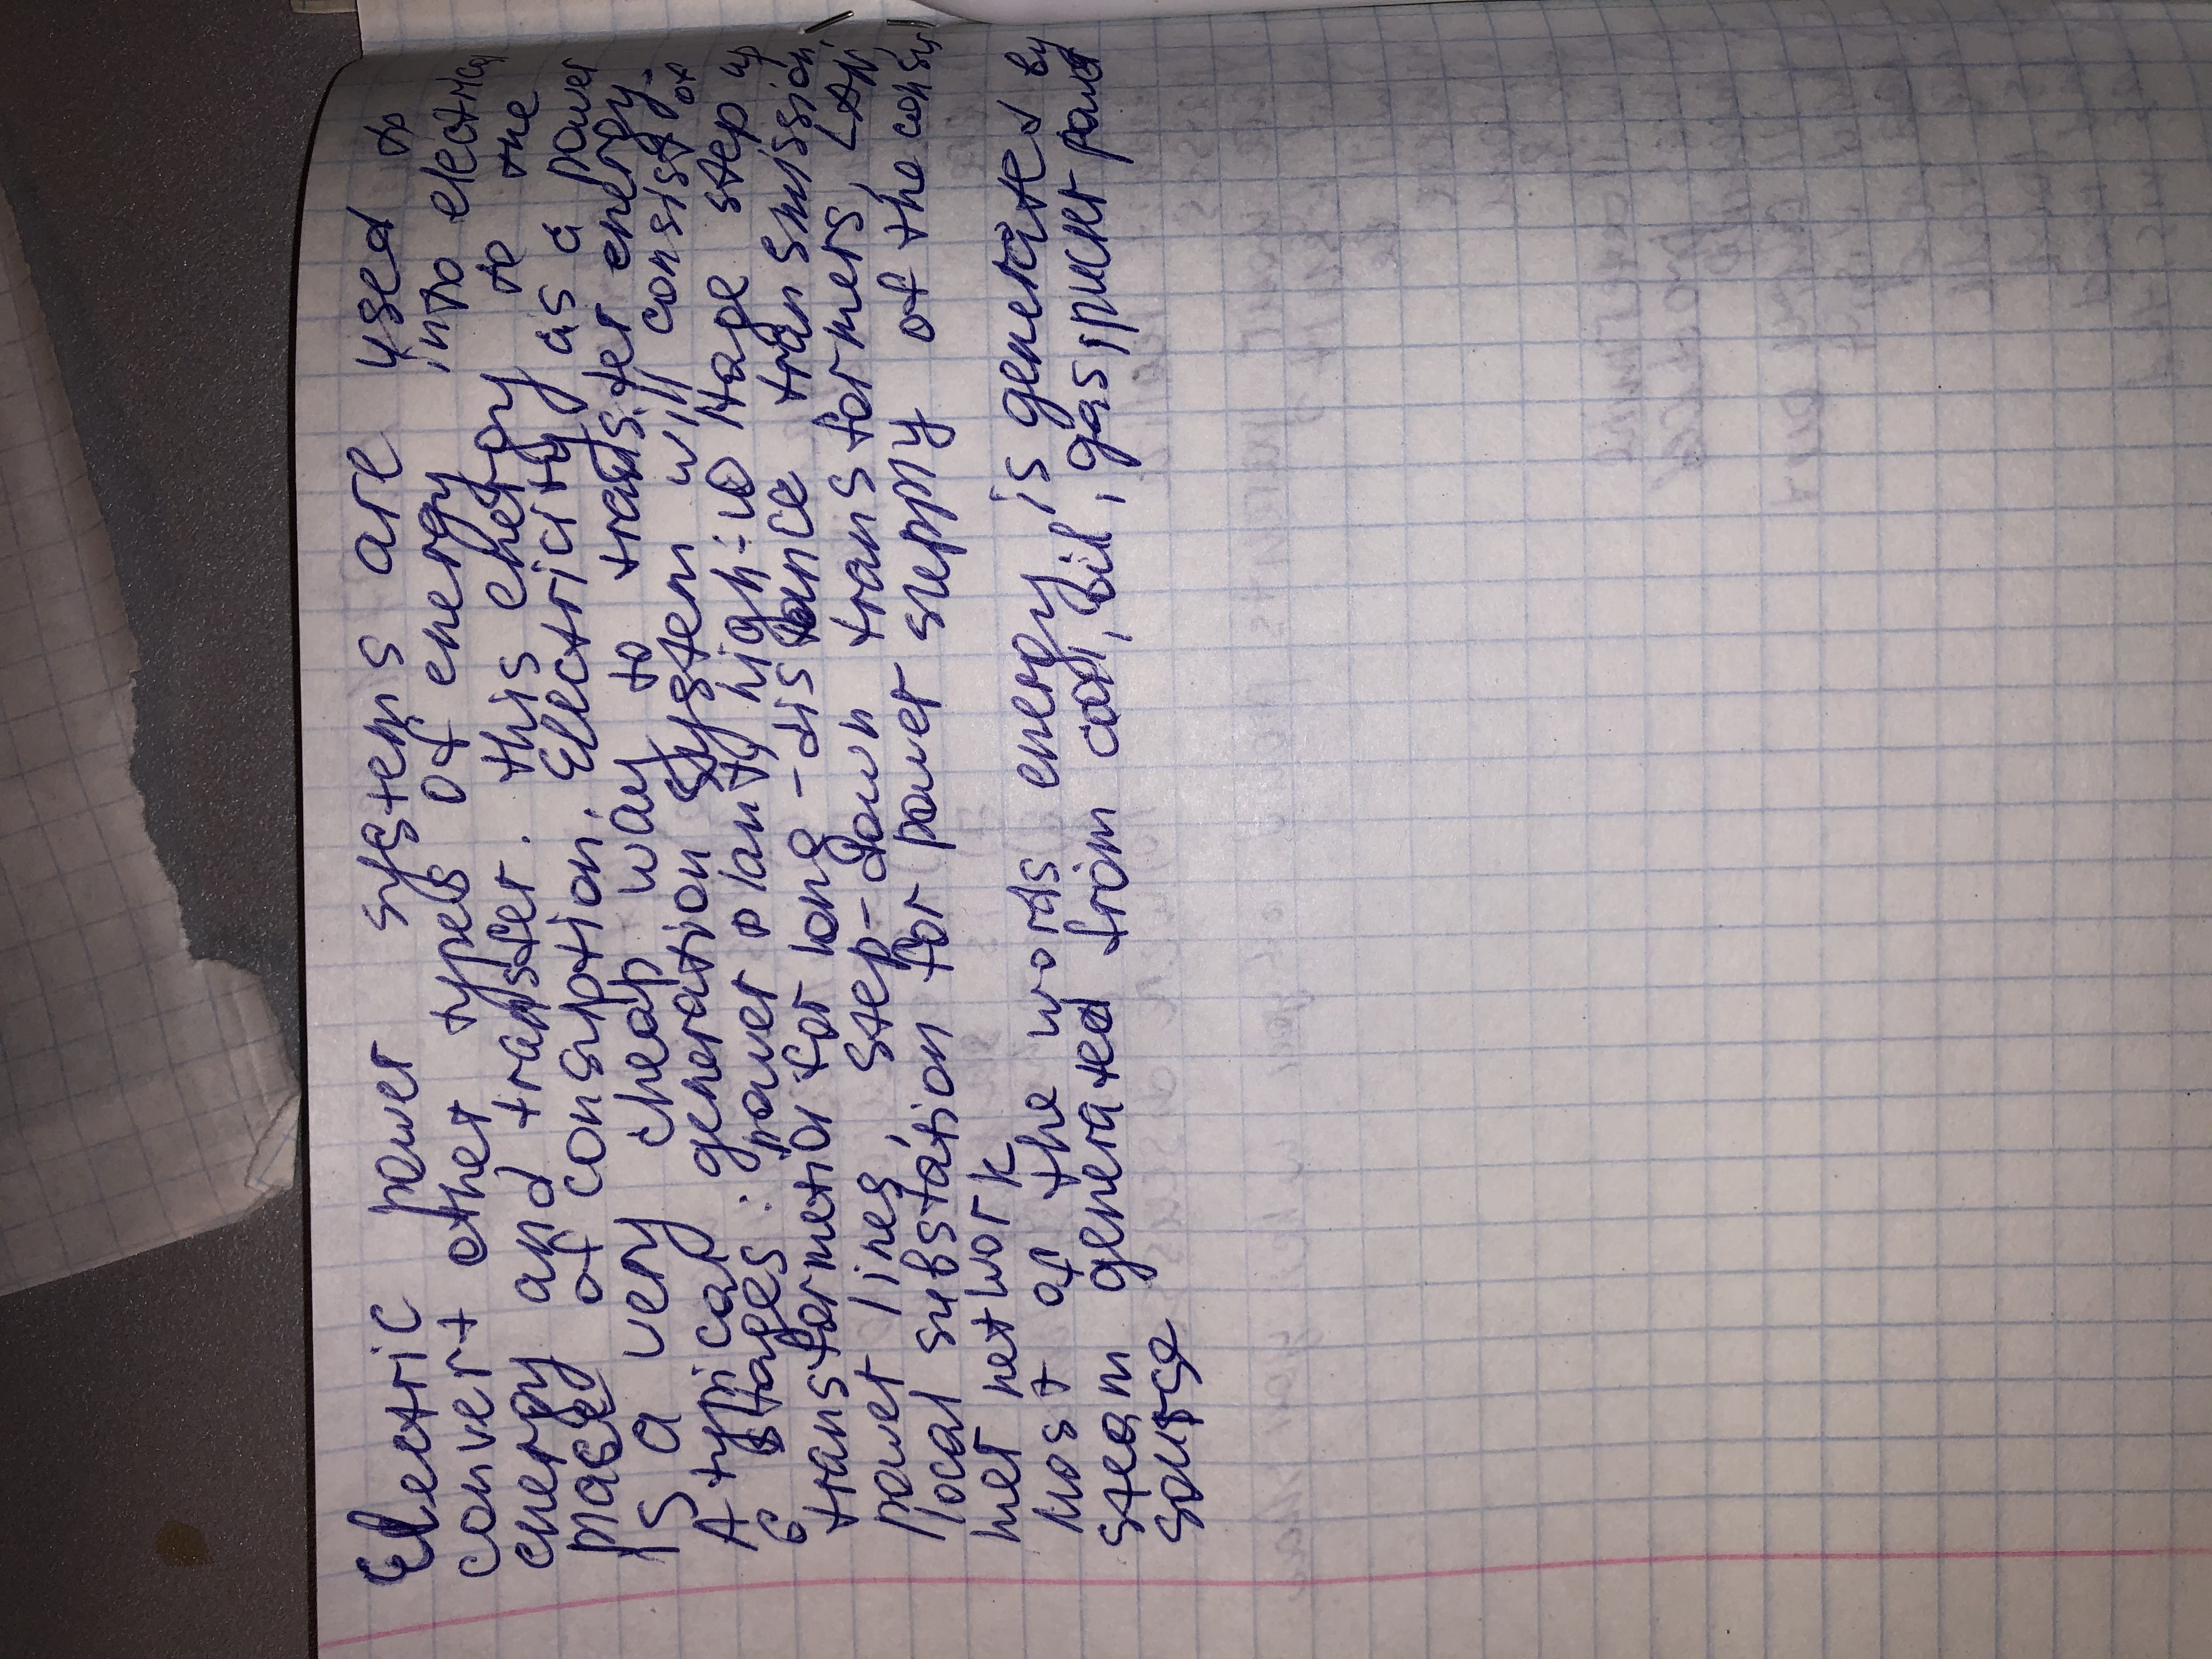 Electric power systems are used to
convert other types of energy into electrical
energy and transfer. this energy to the
place of consuption. Electricity as a power
is a very cheap way to transfer energy.
A typical generation system will consist of
6 stages: power plant, high-voltage step up
transformetion for long-distance transmission,
power lines, step-down transformers,
local substation for power supply of the consu
mer network
Most of the words energy is generated by
steam generated from coal, oil, gas,
sourse